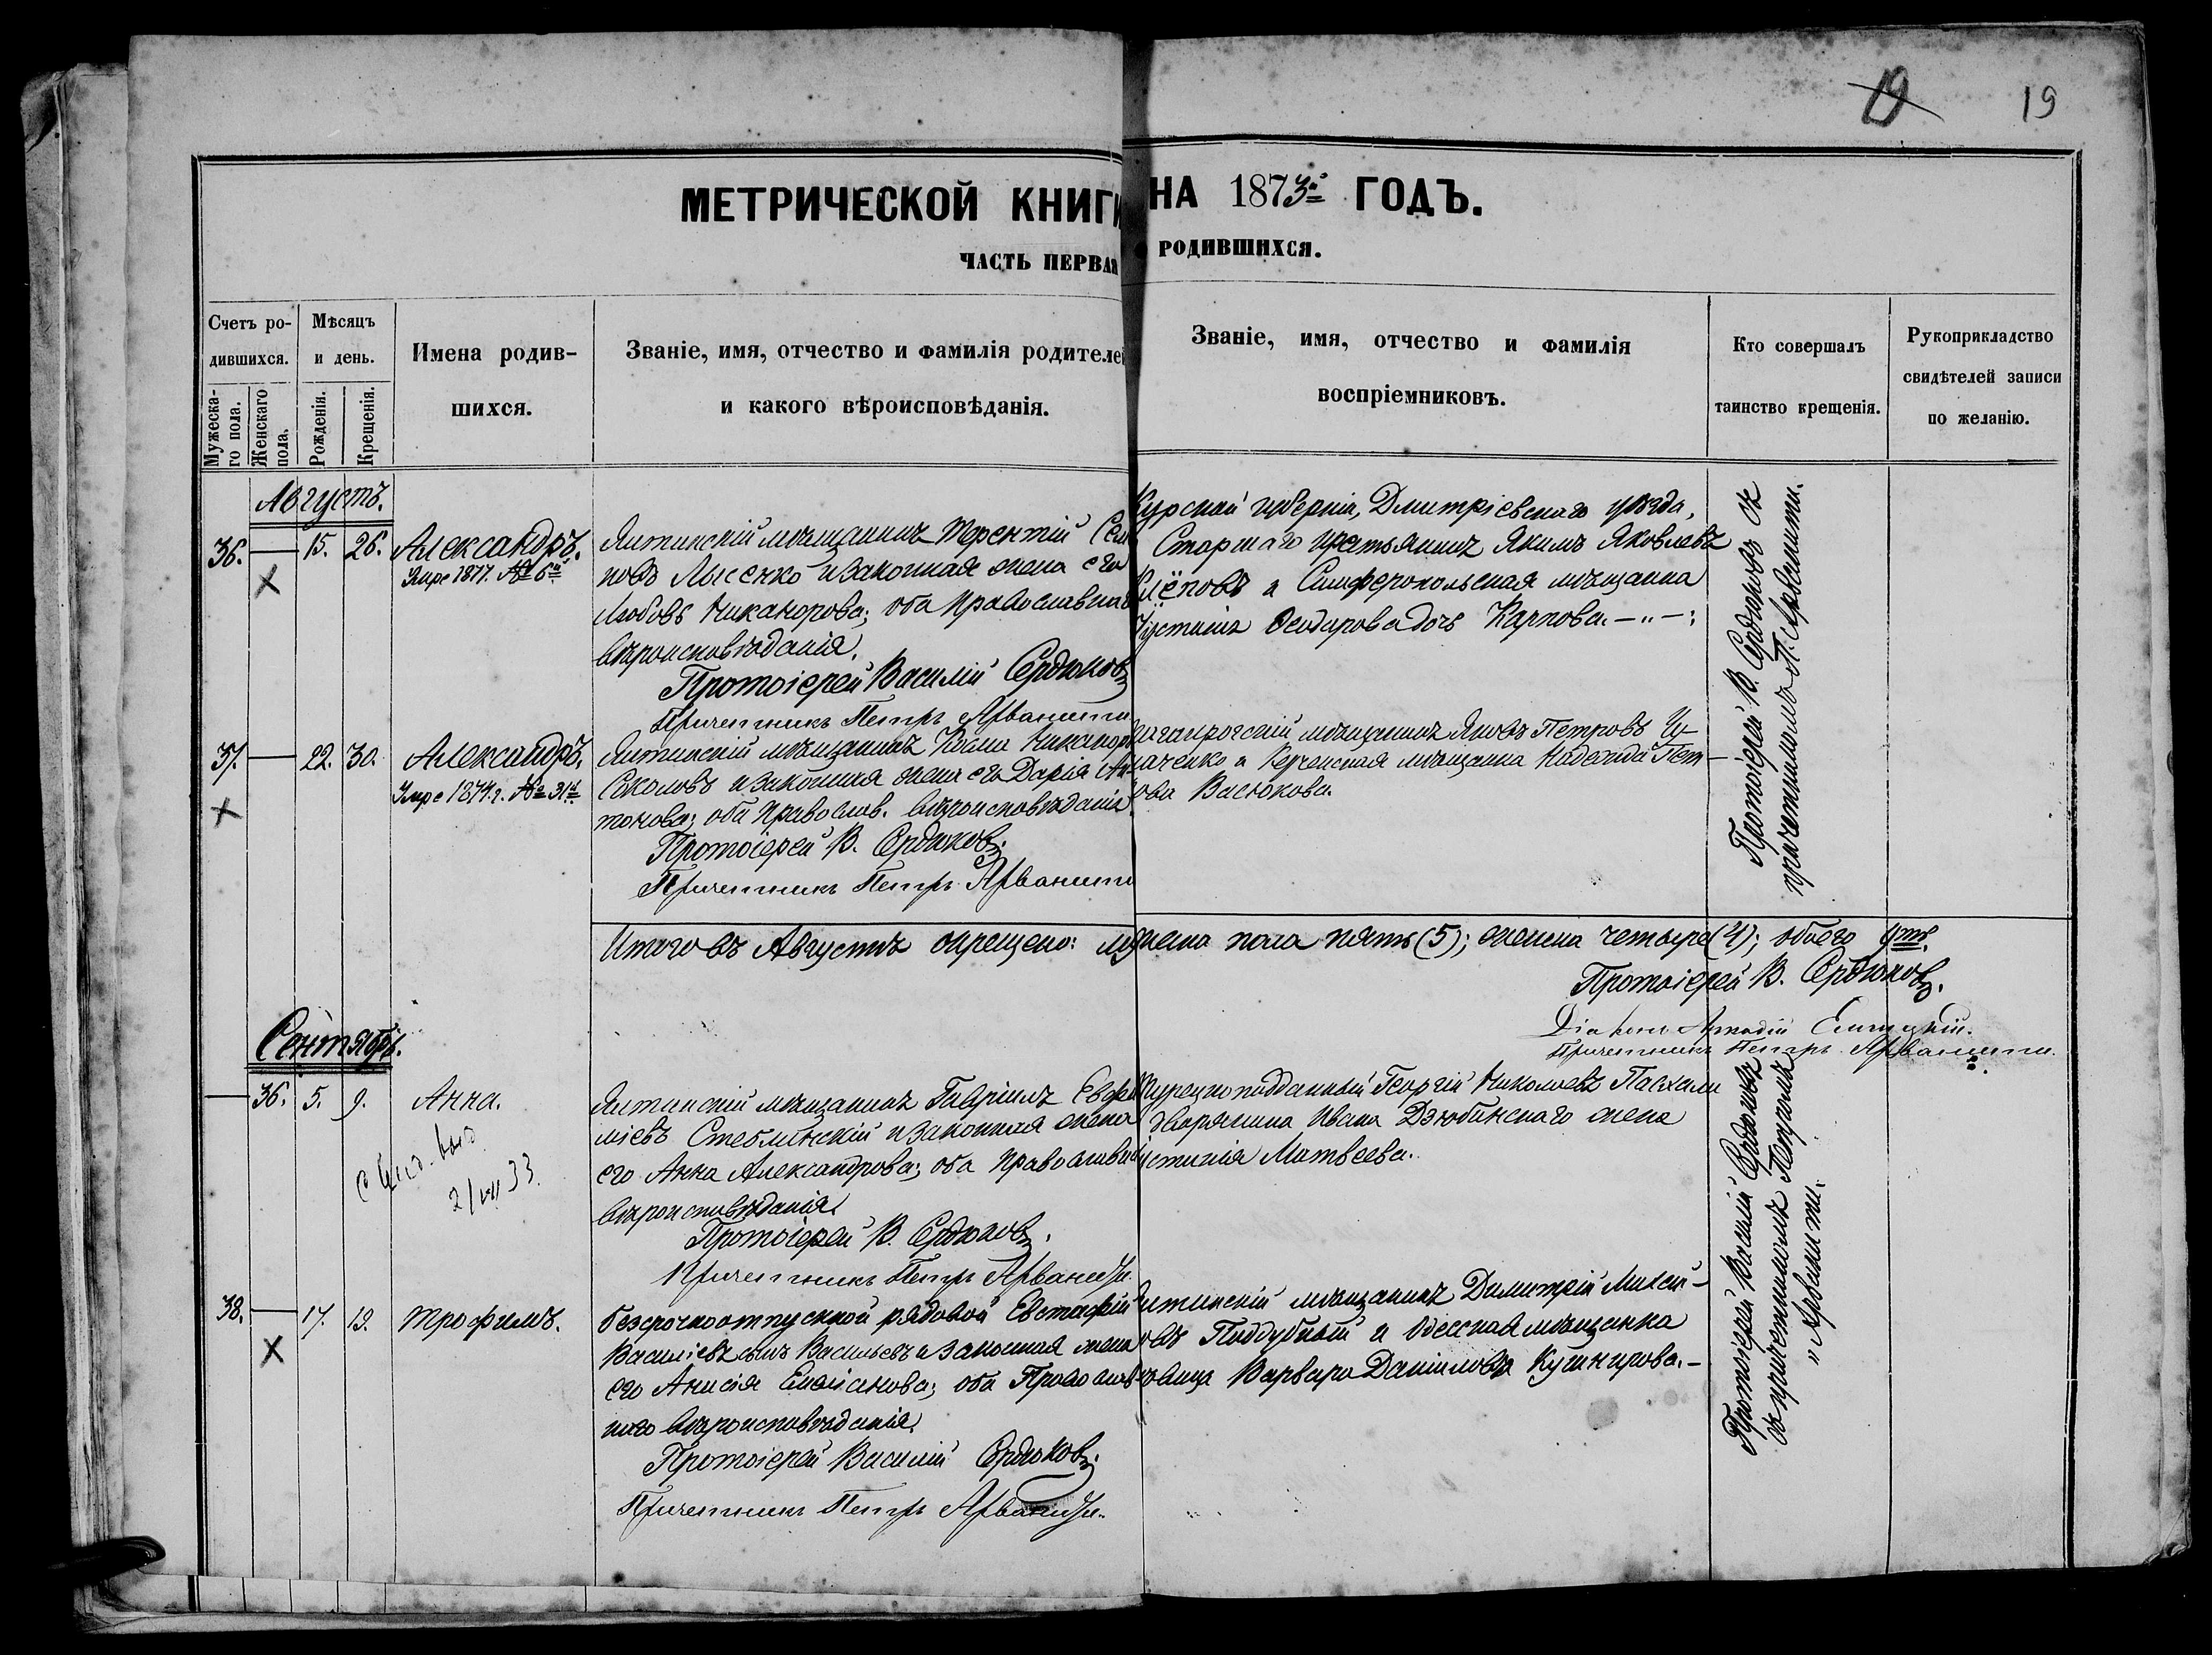 19 19
МЕТРИЧЕСКОЙ КНИГИ НА 1873й ГОДЪ.
ЧАСТЬ ПЕРВАЯ РОДИВШИХСЯ.
Счетъ родившихся.
Мужескаго пола.
Женскаго пола.
Мѣсяцъ и день.
Рожденія.
Крещенія.
Имена родившихся.
Званіе, имя, отчество и фамилія родителей
и какого вѣроисповѣданія.
Званіе, имя, отчество и фамилія
воспріемниковъ.
Кто совершалъ
таинство крещенія.
Рукоприкладство
свидѣтелей записи
по желанію.
Августъ.
36. — 15. 26. Александръ.
Умре 1877. № 6й
Ялтинскій мѣщанинъ Терентій
новъ Лысенко и законная жена его
Любовь Никанорова; оба православнаго
вѣроисповѣданія.
Протоіерей Василій Сердюковъ
Причетникъ Петръ Арванити
Курской губерніи, Дмитріевскаго уѣзда,
крестьянинъ Якимъ Яковлевъ
и Симферопольская мѣщанка
Ѳеодорова дочь Карпова. — „ — ;
Протоіерей В. Сердюковъ съ
причетникомъ П. Арванити.
37. — 22. 30. Александръ.
Умре 1874 г. № 31й
Ялтинскій мѣщанинъ Косма Никаноровъ
Соколовъ и законная жена его Дарія Ан-
тонова; оба православ. вѣроисповѣданія.
Протоіерей В. Сердюковъ.
Причетникъ Петръ Арванити
Таганрогскій мѣщанинъ Яковъ Петровъ
и Керченская мѣщанка Надежда Пет-
рова Васюкова.
Итого въ Августѣ окрещено: мужеска пола пять (5); женска четыре (4); обоего 9ть.
Протоіерей В. Сердюковъ.
Діаконъ Аркадій
Причетникъ Петръ Арванити.
Сентябрь.
— 36. 5. 9. Анна.
2/VII 33.
Ялтинскій мѣщанинъ Гавріилъ Евфи-
міевъ Стеблинскій и законная жена
его Анна Александрова; оба православнаго
вѣроисповѣданія.
Протоіерей В. Сердюковъ.
Причетникъ Петръ Арванити.
Турецкоподданный Георгій Николаевъ Пасхали
и дворянина Ивана Дзюбинскаго жена
Устинія Матвеева.
Протоіерей Василій Сердюковъ
съ причетникомъ Петромъ
„ Арванити.
38. — 17. 19. Трофимъ.
безсрочноотпускной рядовой Евстафій
Васильевъ сынъ Васильевъ и законная жена
его Анисія Емеліанова; оба Православ-
наго вѣроисповѣданія.
Протоіерей Василій Сердюковъ.
Причетникъ Петръ Арванити.
Ялтинскій мѣщанинъ Димитрій
Поддубный и Одесская мѣщанка
Варвара Даніилова Кушнирова. —